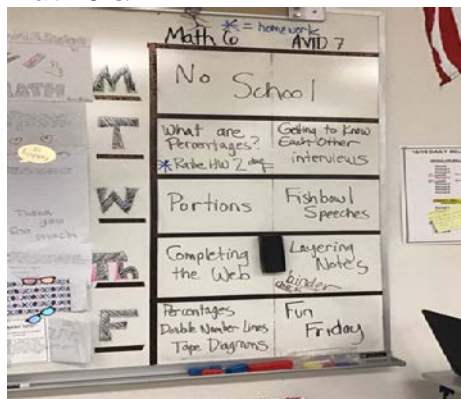 Math 6
* = homework
AVID 7
M
No School
T
What are
Percentages?
Getting to Know
Each Other
interviews
W
Portions
Fishbowl
Speeches
Th
Completing
the Web
Layering
Notes
binder
check
F
Percentages
Double Number Lines
Tape Diagrams
Fun
Friday
MATH
Thank
you